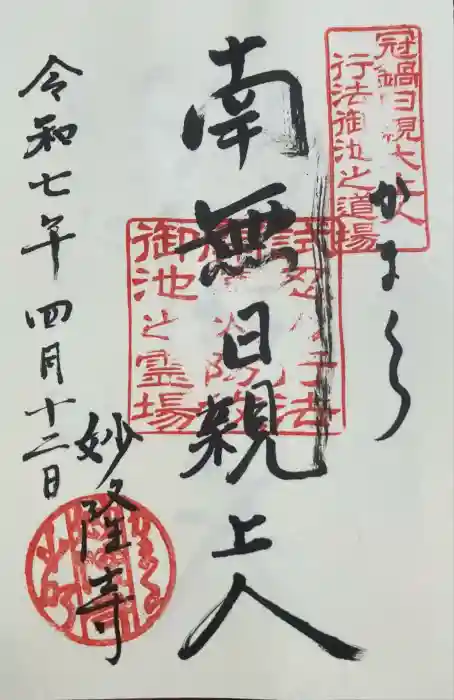 かまくら
冠鍋日親大上人
行法御池之道場
南無日親上人
御池之霊場
令和七年四月十二日
妙隆寺